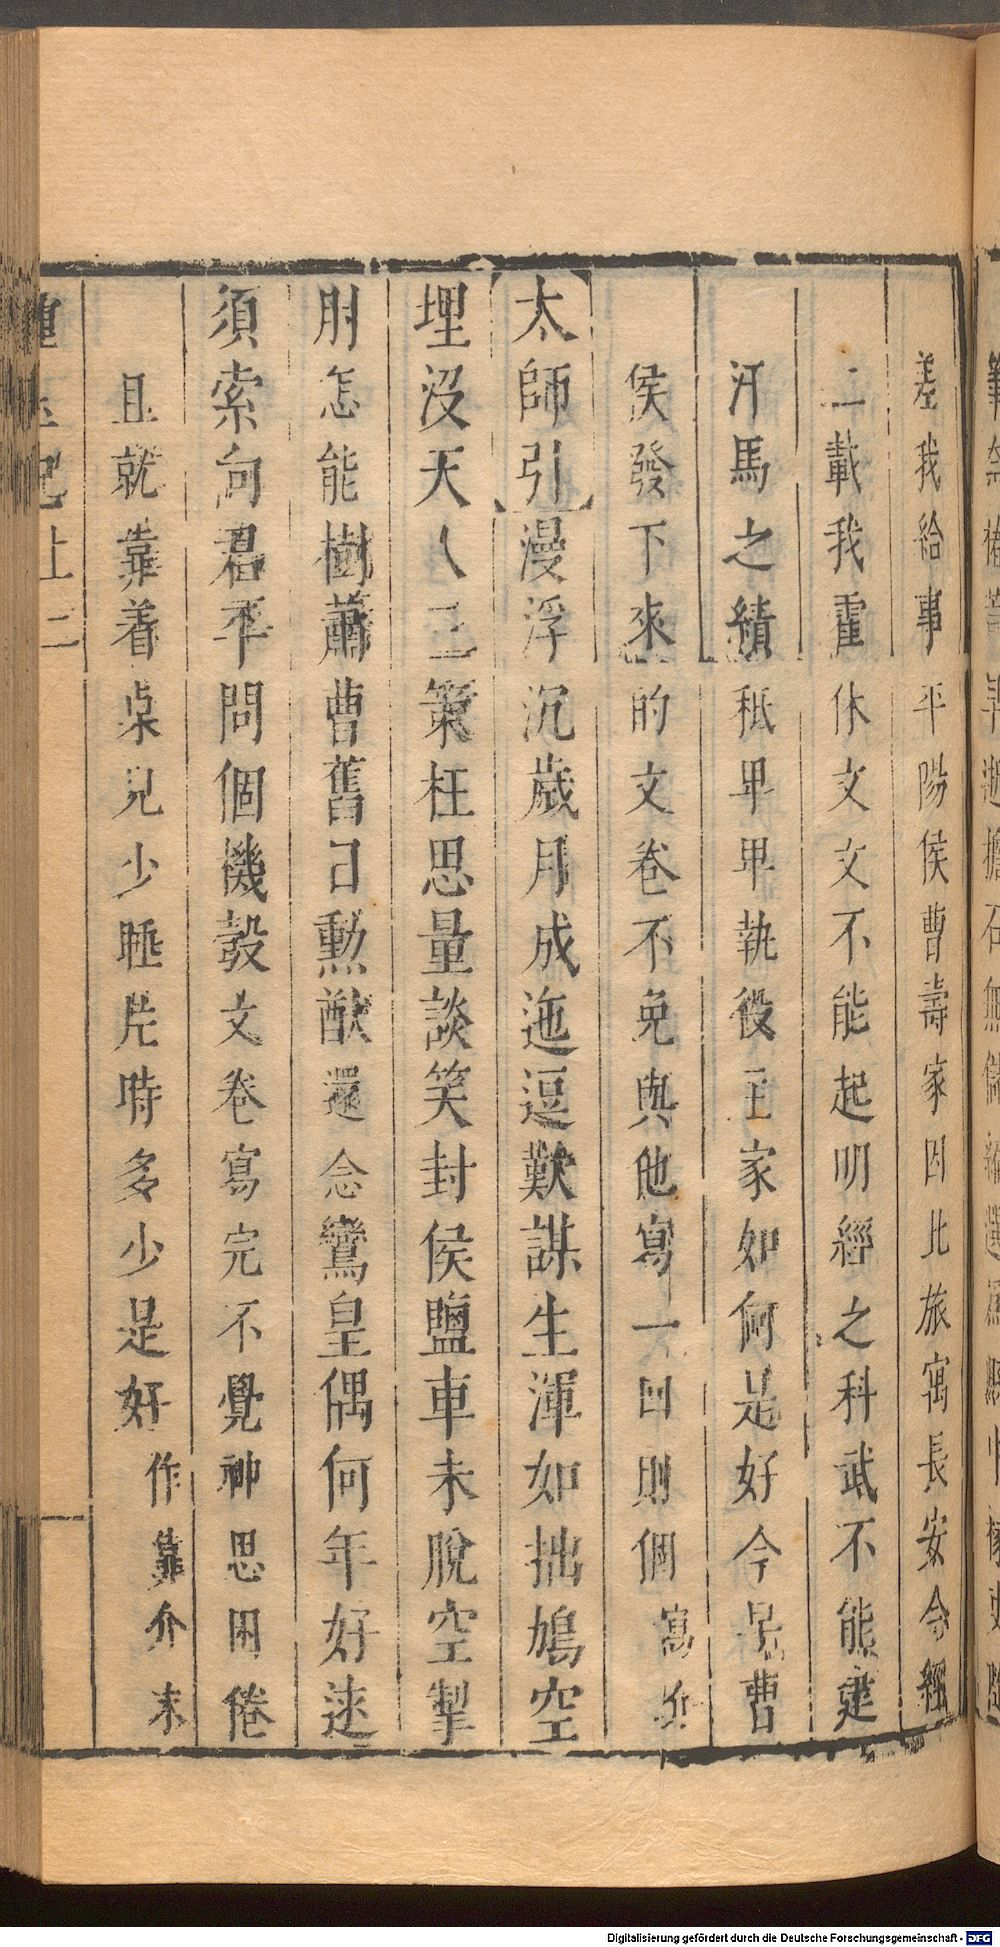 差我給事平陽侯曹壽家因此旅寓長安今經
二載我霍休文文不能起明經之科武不能建
汗馬之績秪畢畢執役王家如何是好今是曹
侯發下來的文卷不免與他寫一囬則個寫介
太師引漫浮沉歲月成迤逗歎謀生渾如拙鳩空
埋沒天人三策枉思量談笑封侯鹽車未脫空掣
肘怎能樹蕭曹舊日勳猷還念鸞皇偶何年好逑
須索向君平問個機彀文卷寫完不覺神思困倦
且就靠着桌兒少睡片時多少是好作靠介末
記上 二
Digitalisierung gefördert durch die Deutsche Forschungsgemeinschaft - DFG